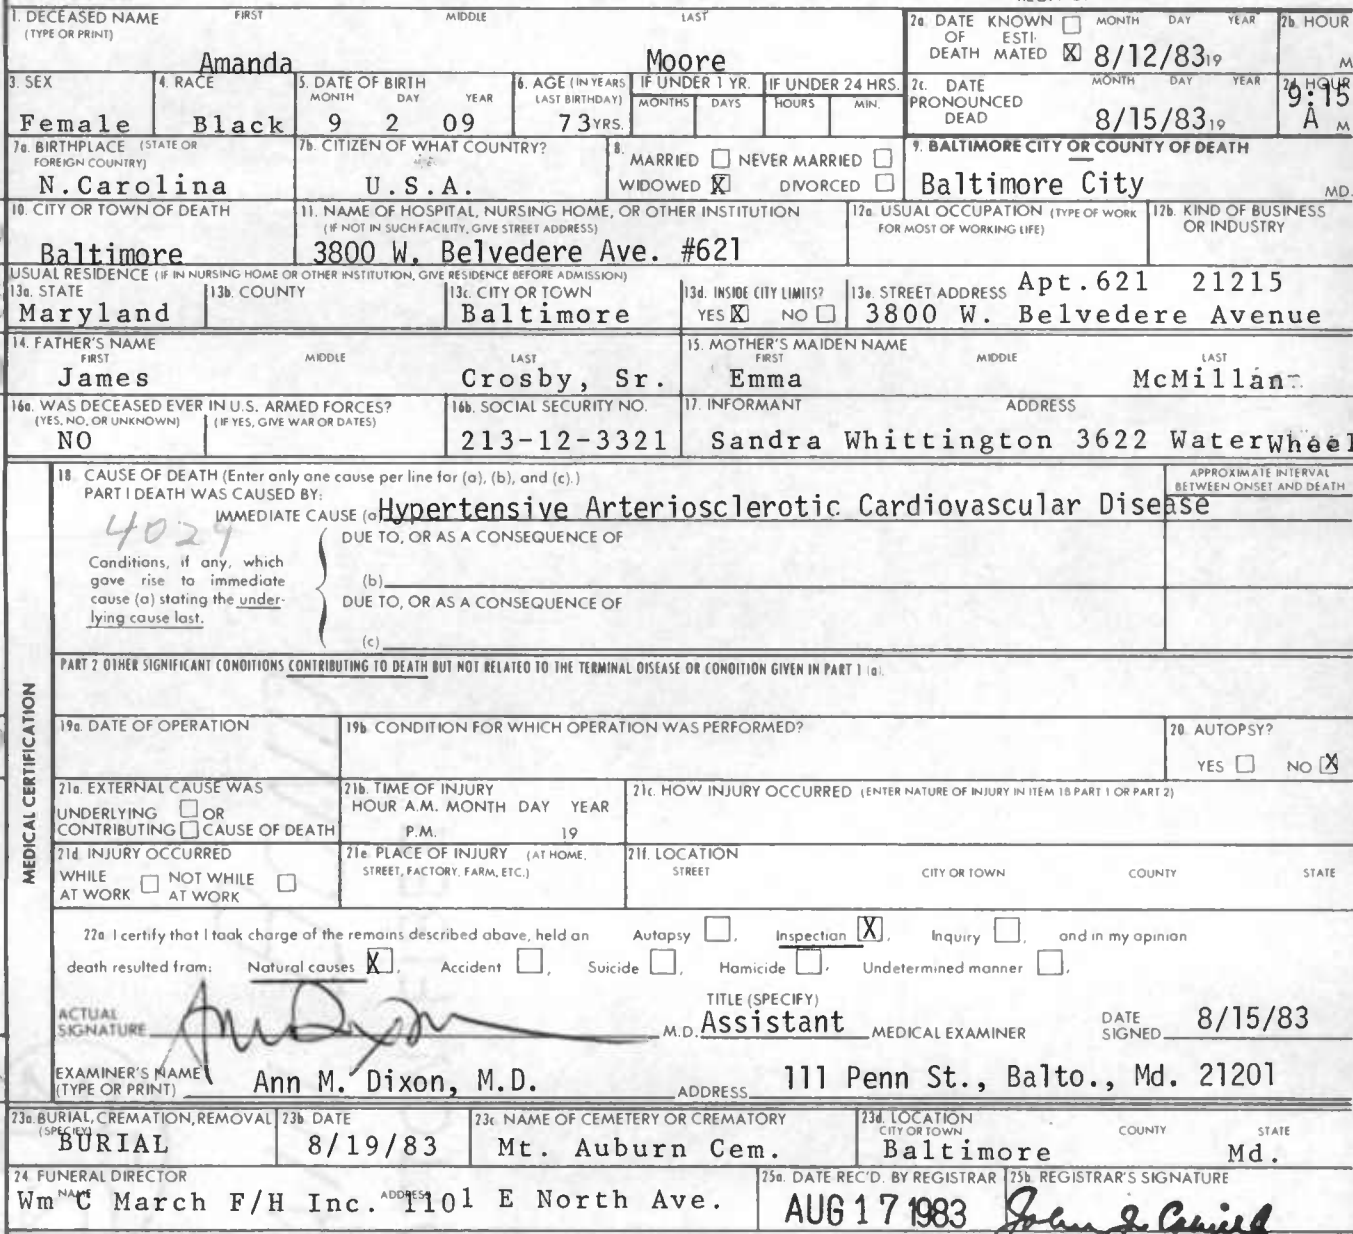 1. DECEASED NAME FIRST MIDDLE LAST
(TYPE OR PRINT)
Amanda Moore
2a. DATE KNOWN MONTH DAY YEAR
OF ESTI-
DEATH MATED X 8/12/83 19
2b. HOUR
M
3. SEX
Female
4. RACE
Black
5. DATE OF BIRTH
MONTH DAY YEAR
9 2 09
6. AGE (IN YEARS
LAST BIRTHDAY)
73 YRS.
IF UNDER 1 YR.
MONTHS DAYS
IF UNDER 24 HRS.
HOURS MIN.
2c. DATE MONTH DAY YEAR
PRONOUNCED
DEAD 8/15/83 19
2d. HOUR
9:15
A M
7a. BIRTHPLACE (STATE OR
FOREIGN COUNTRY)
N.Carolina
7b. CITIZEN OF WHAT COUNTRY?
U.S.A.
8.
MARRIED NEVER MARRIED
WIDOWED X DIVORCED
9. BALTIMORE CITY OR COUNTY OF DEATH
Baltimore City MD.
10. CITY OR TOWN OF DEATH
Baltimore
11. NAME OF HOSPITAL, NURSING HOME, OR OTHER INSTITUTION
(IF NOT IN SUCH FACILITY, GIVE STREET ADDRESS)
3800 W. Belvedere Ave. #621
12a. USUAL OCCUPATION (TYPE OF WORK
FOR MOST OF WORKING LIFE)
12b. KIND OF BUSINESS
OR INDUSTRY
USUAL RESIDENCE (IF IN NURSING HOME OR OTHER INSTITUTION, GIVE RESIDENCE BEFORE ADMISSION)
13a. STATE
Maryland
13b. COUNTY
13c. CITY OR TOWN
Baltimore
13d. INSIDE CITY LIMITS?
YES X NO
13e. STREET ADDRESS Apt.621 21215
3800 W. Belvedere Avenue
14. FATHER'S NAME
FIRST MIDDLE LAST
James Crosby, Sr.
15. MOTHER'S MAIDEN NAME
FIRST MIDDLE LAST
Emma McMillan
16a. WAS DECEASED EVER IN U.S. ARMED FORCES?
(YES, NO, OR UNKNOWN) (IF YES, GIVE WAR OR DATES)
NO
16b. SOCIAL SECURITY NO.
213-12-3321
17. INFORMANT ADDRESS
Sandra Whittington 3622 Waterwheel
MEDICAL CERTIFICATION
18 CAUSE OF DEATH (Enter only one cause per line for (a), (b), and (c).)
PART I DEATH WAS CAUSED BY:
APPROXIMATE INTERVAL
BETWEEN ONSET AND DEATH
IMMEDIATE CAUSE (a) Hypertensive Arteriosclerotic Cardiovascular Disease
4029
DUE TO, OR AS A CONSEQUENCE OF
Conditions, if any, which
gave rise to immediate
cause (a) stating the under-
lying cause last.
(b)
DUE TO, OR AS A CONSEQUENCE OF
(c)
PART 2 OTHER SIGNIFICANT CONDITIONS CONTRIBUTING TO DEATH BUT NOT RELATED TO THE TERMINAL DISEASE OR CONDITION GIVEN IN PART 1 (a).
19a. DATE OF OPERATION
19b. CONDITION FOR WHICH OPERATION WAS PERFORMED?
20. AUTOPSY?
YES NO X
21a. EXTERNAL CAUSE WAS
UNDERLYING OR
CONTRIBUTING CAUSE OF DEATH
21b. TIME OF INJURY
HOUR A.M. MONTH DAY YEAR
P.M. 19
21c. HOW INJURY OCCURRED (ENTER NATURE OF INJURY IN ITEM 18 PART 1 OR PART 2)
21d INJURY OCCURRED
WHILE NOT WHILE
AT WORK AT WORK
21e PLACE OF INJURY (AT HOME,
STREET, FACTORY, FARM, ETC.)
21f. LOCATION
STREET CITY OR TOWN COUNTY STATE
22a I certify that I took charge of the remains described above, held an Autopsy , Inspection X , Inquiry , and in my opinion
death resulted from: Natural causes X , Accident , Suicide , Homicide , Undetermined manner .
ACTUAL
SIGNATURE Ann Dixon M.D.
TITLE (SPECIFY)
Assistant MEDICAL EXAMINER
DATE
SIGNED 8/15/83
EXAMINER'S NAME
(TYPE OR PRINT) Ann M. Dixon, M.D. ADDRESS 111 Penn St., Balto., Md. 21201
23a. BURIAL, CREMATION, REMOVAL
(SPECIFY)
BURIAL
23b. DATE
8/19/83
23c. NAME OF CEMETERY OR CREMATORY
Mt. Auburn Cem.
23d. LOCATION
CITY OR TOWN COUNTY STATE
Baltimore Md.
24 FUNERAL DIRECTOR
NAME ADDRESS
Wm C March F/H Inc. 1101 E North Ave.
25a. DATE REC'D. BY REGISTRAR
AUG 17 1983
25b. REGISTRAR'S SIGNATURE